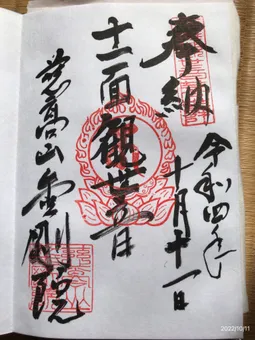 奉納
令和四年
十月十一日
十一面観世音
高山金剛院
2022/10/11